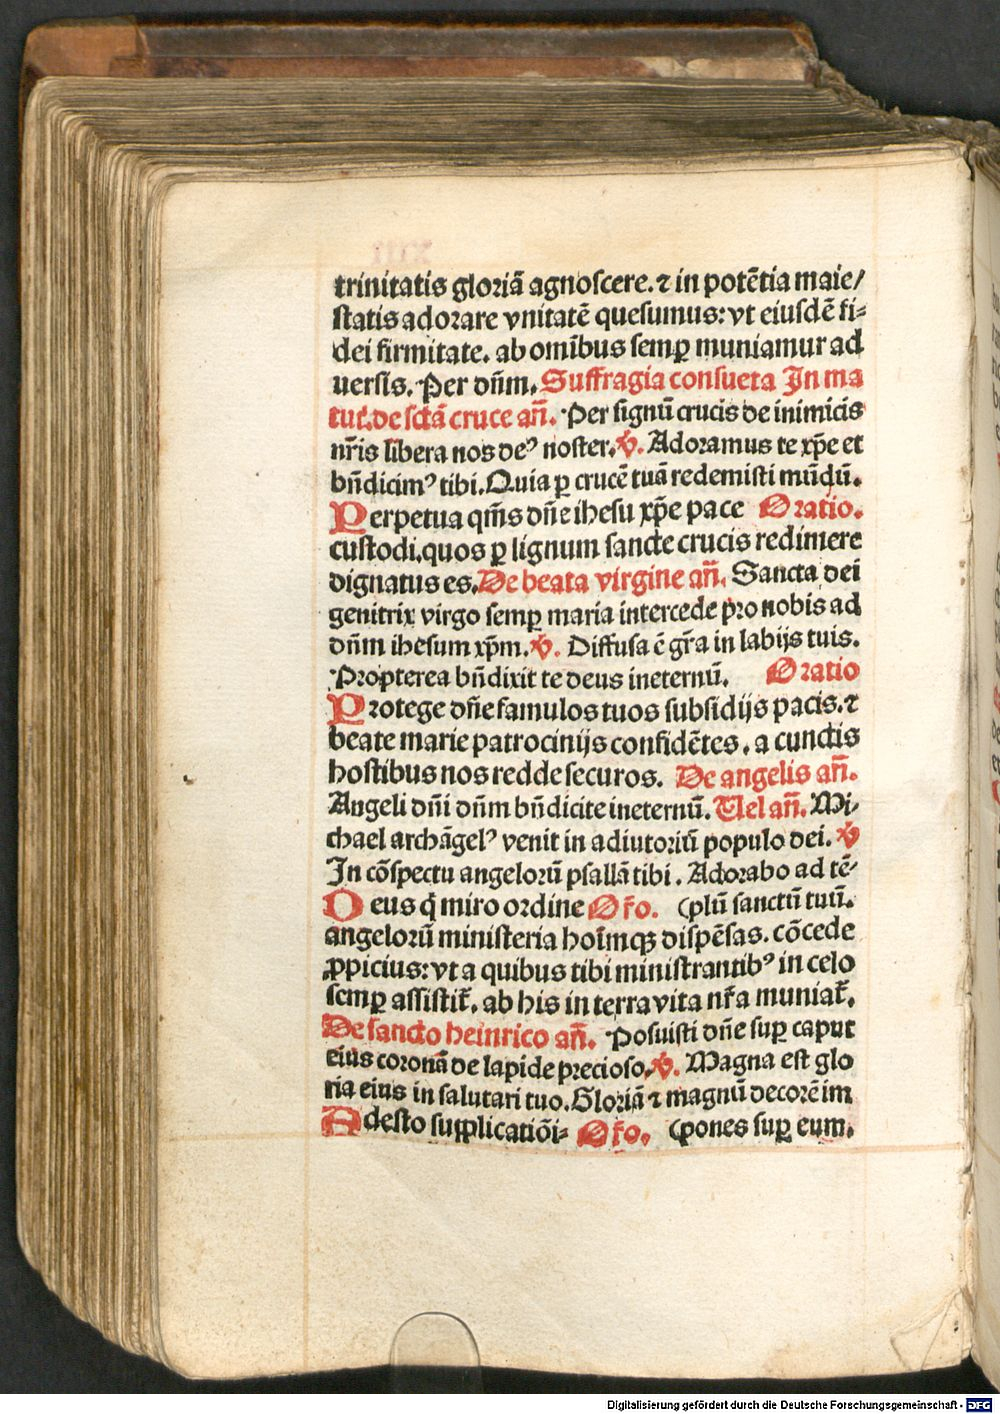 trinitatis gloriā agnoscere. ⁊ in potētia maie/
statis adorare vnitatē quesumus: vt eiusdē fi⸗
dei firmitate. ab omībus semꝑ muniamur ad
uersis. Per dn̄m. Suffragia consueta In ma
tut. de sctā cruce an̄. Per signū crucis de inimicis
nr̄is libera nos deꝰ noster. ℣. Adoramus te xp̄e et
bn̄dicimꝰ tibi. Quia ꝑ crucē tuā redemisti mūdū.
Perpetua qm̄s dn̄e ihesu xp̄e pace Oratio.
custodi. quos ꝑ lignum sancte crucis redimere
dignatus es. De beata virgine an̄. Sancta dei
genitrix virgo semꝑ maria intercede pro nobis ad
dn̄m ihesum xp̄m. ℣. Diffusa ē gr̄a in labijs tuis.
Propterea bn̄dixit te deus ineternū. Oratio
Protege dn̄e famulos tuos subsidijs pacis. ⁊
beate marie patrocinijs confidētes. a cunctis
hostibus nos redde securos. De angelis an̄.
Angeli dn̄i dn̄m bn̄dicite ineternū. Uel an̄. Mi⸗
chael archāgelꝰ venit in adiutoriū populo dei. ℣
In cōspectu angelorū psallā tibi. Adorabo ad tē⸗
Deus q̄ miro ordine Or̄o. (plū sanctū tuū.
angelorū ministeria hoīmqꝫ dispēsas. cōcede
ꝓpicius: vt a quibus tibi ministrantibꝰ in celo
semꝑ assistit̄. ab his in terra vita nr̄a muniat̄.
De sancto heinrico an̄. Posuisti dn̄e suꝑ caput
eius coronā de lapide precioso. ℣. Magna est glo
ria eius in salutari tuo. Gloriā ⁊ magnū decorē im
Adesto supplicatiōi⸗ Or̄o. (pones suꝑ eum.
Digitalisierung gefördert durch die Deutsche Forschungsgemeinschaft - DFG